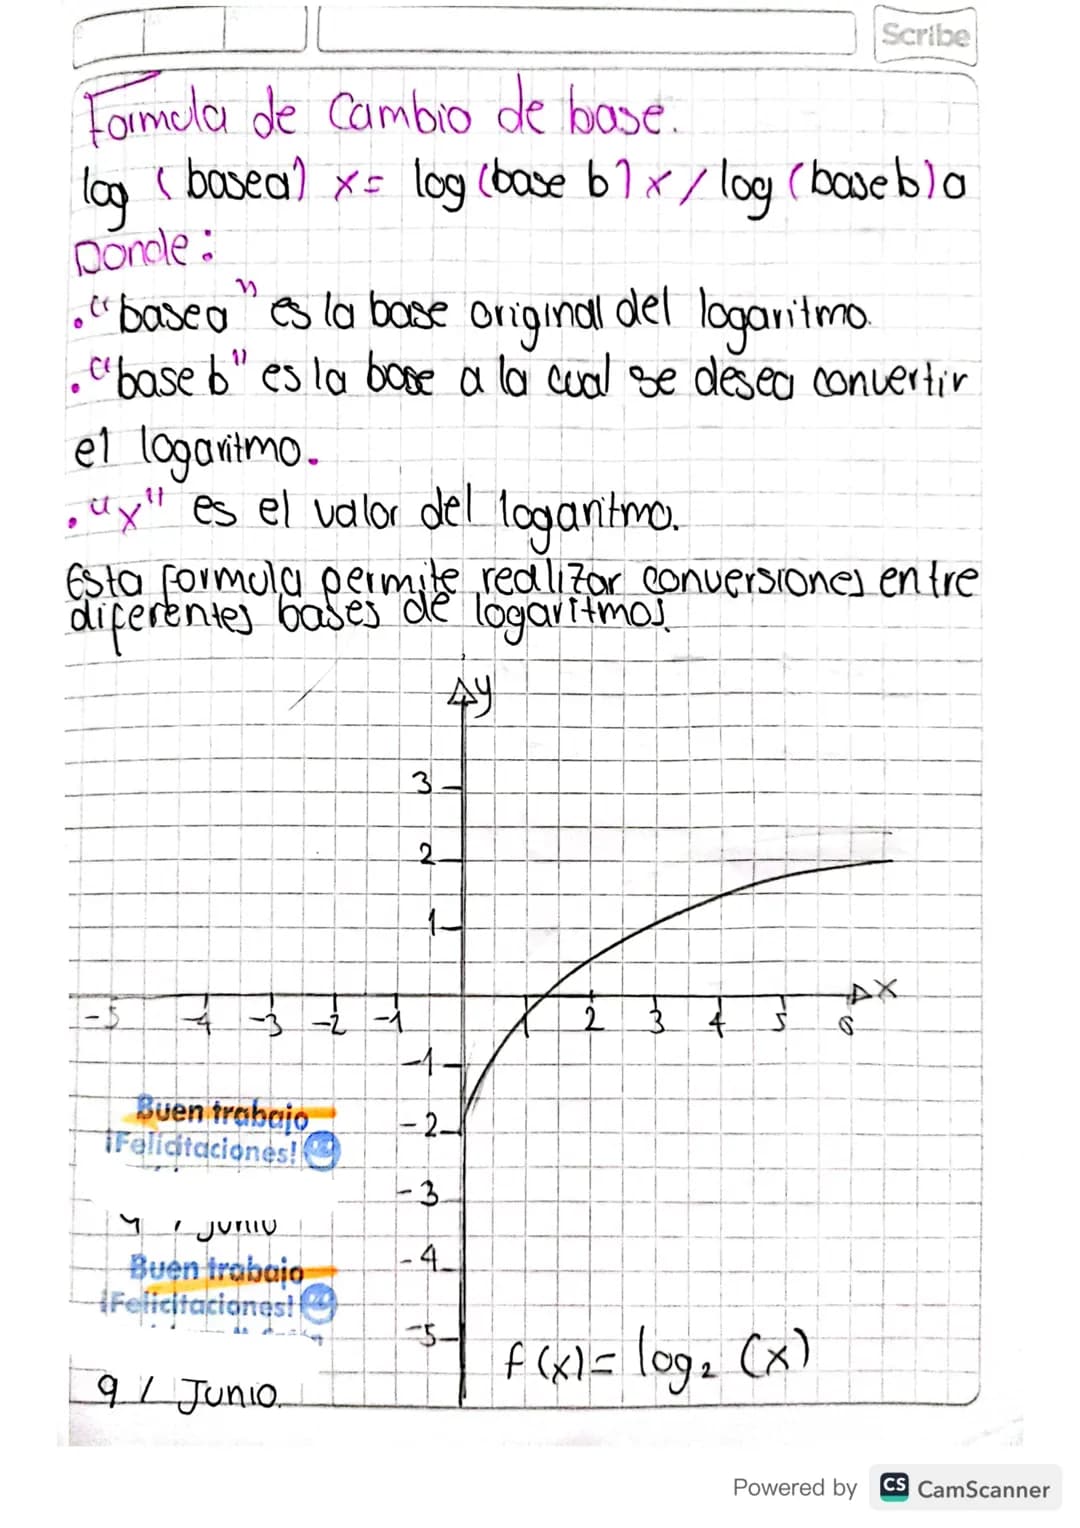 Scribe
Formula de Cambio de base.
log (base a) x = log (base b) x / log (base b) a
Donde:
• "base a" es la base original del logaritmo.
• "base b" es la base a la cual se desea convertir
el logaritmo.
• "x" es el valor del logaritmo.
Esta formula permite realizar conversiones entre
diferentes bases de logaritmos.
y
3
2
1
x
-5 -4 -3 -2 -1 1 2 3 4 5 6
-1
-2
-3
-4
-5
Buen trabajo
¡Felicitaciones!
Junio
Buen trabajo
¡Felicitaciones!
f(x) = log₂ (x)
9 / Junio.
Powered by CS CamScanner